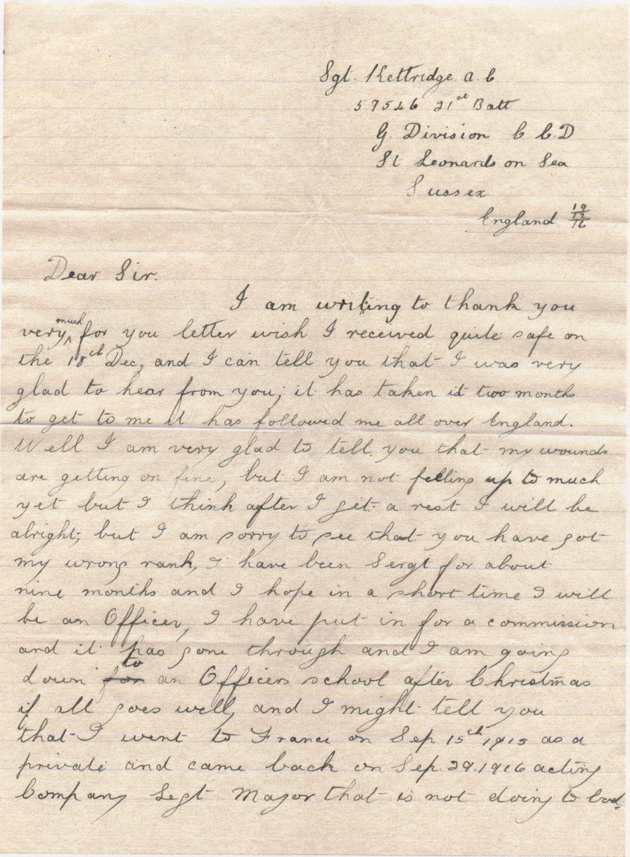 Sgt. Kettridge. A. C
59546 21st Batt
G. Division C C D
St Leonards on Sea
Sussex
England 19/12/16
Dear Sir.
I am writing to thank you
very much for you letter wish I received quite safe on
the 18th Dec, and I can tell you that I was very
glad to hear from you; it has taken it two months
to get to me it has followed me all over England.
Well I am very glad to tell you that my wounds
are getting on fine, but I am not felling up to much
yet but I think after I get a rest I will be
alright, but I am sorry to see that you have got
my wrong rank, I have been Sergt for about
nine months and I hope in a short time I will
be an Officer, I have put in for a commission
and it has gone through and I am going
down for to an Officers school after Christmas
if all goes well, and I might tell you
that I went to France on Sep 15th 1915 as a
private and came back on Sep. 29. 1916 acting
Company Segt Major that is not doing to bad,